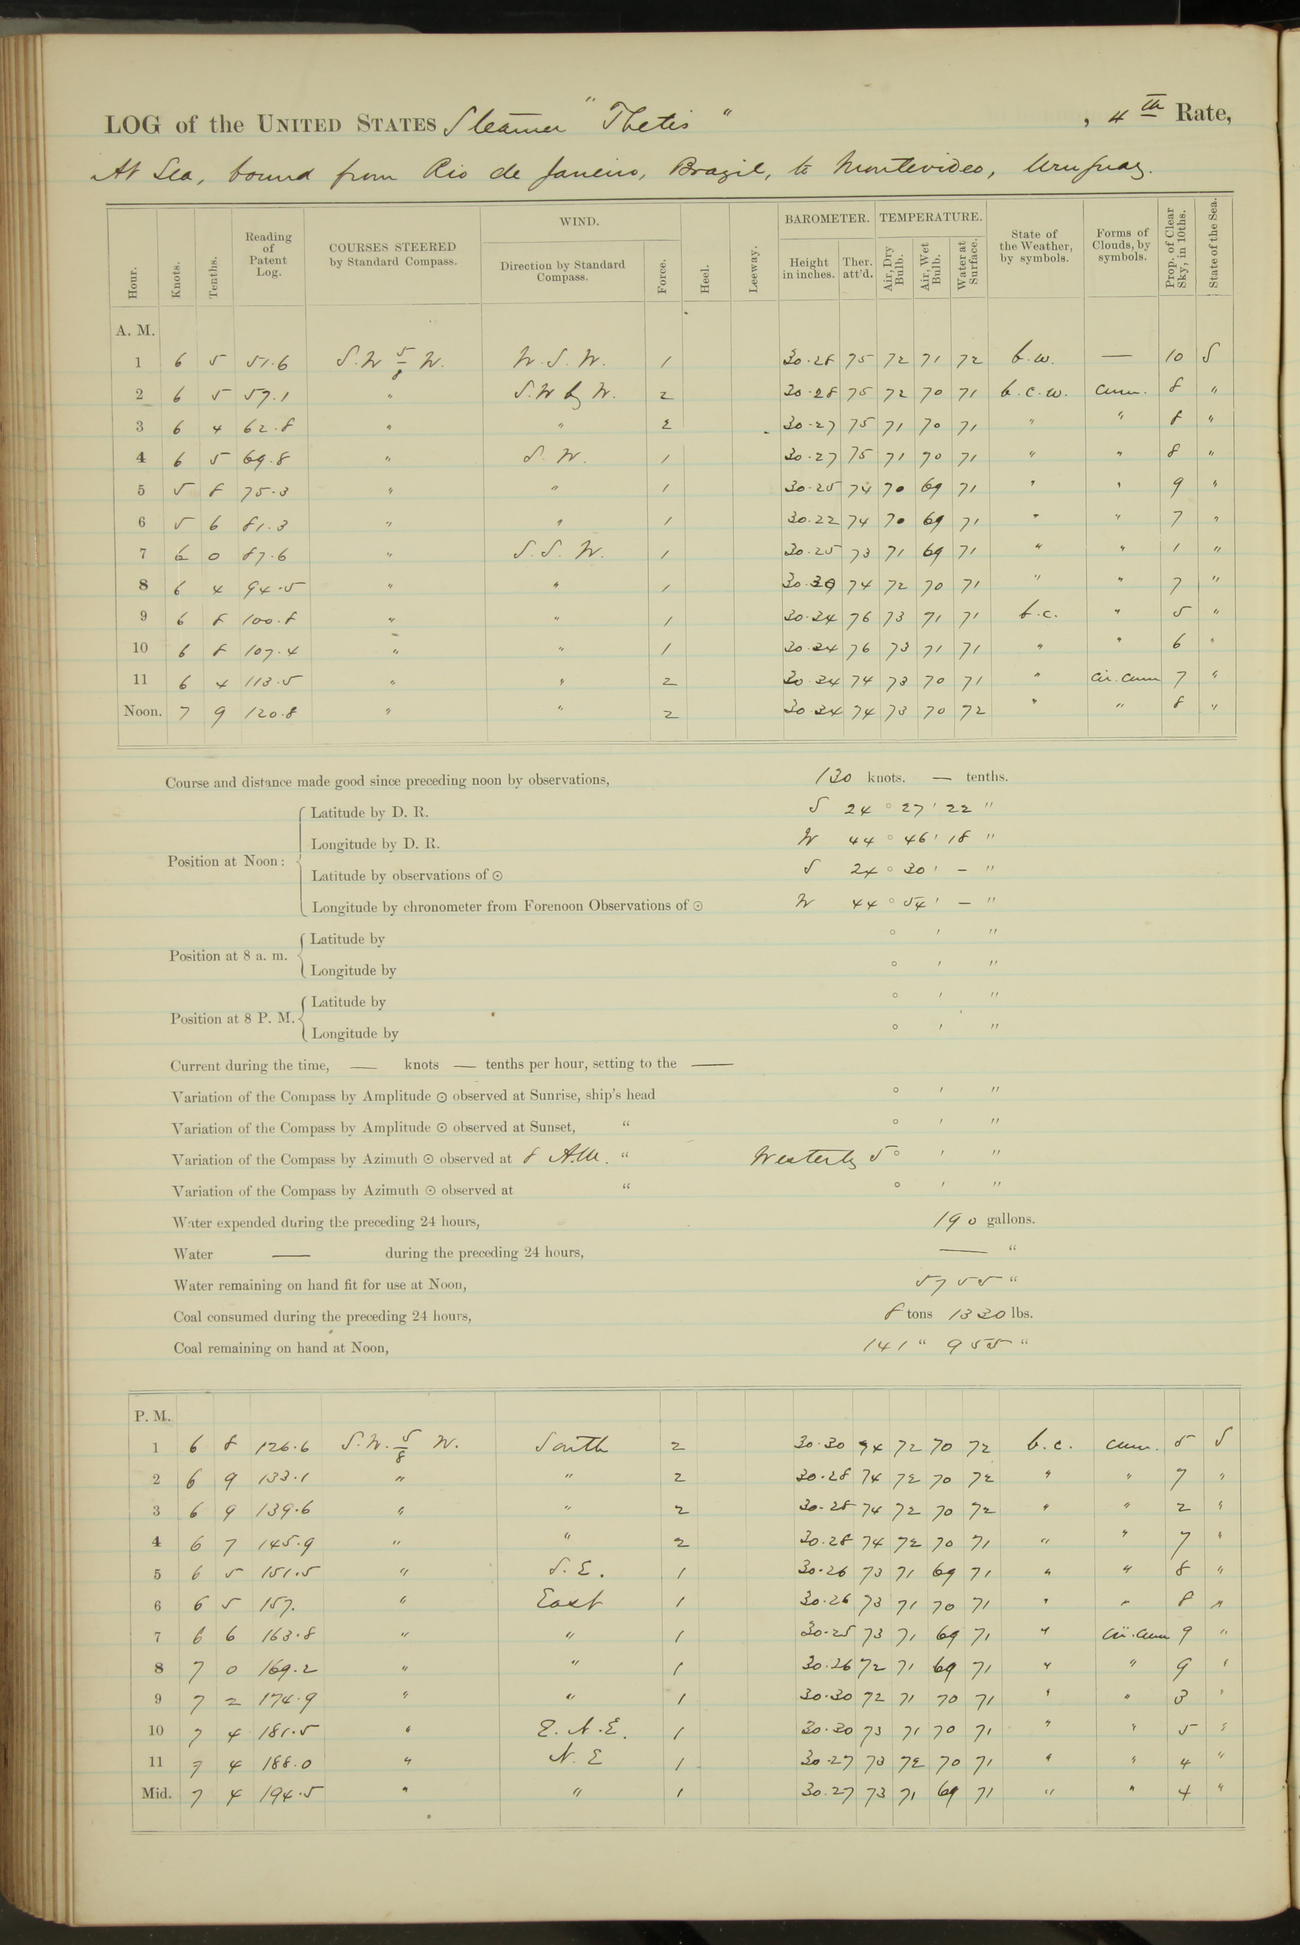 LOG of the UNITED STATES Steamer "Thetis", 4th Rate,
At Sea, bound from Rio de Janeiro, Brazil, to Montevideo, Uruguay.
Hour. Knots. Tenths. Reading of Patent Log. COURSES STEERED by Standard Compass. WIND. Direction by Standard Compass. Force. Heel. Leeway. BAROMETER. Height in inches. Ther. att'd. TEMPERATURE. Air, Dry Bulb. Air, Wet Bulb. Water at Surface. State of the Weather, by symbols. Forms of Clouds, by symbols. Prop. of Clear Sky, in 10ths. State of the Sea.
A. M.
1 6 5 51.6 S.W 5/8 W. W.S.W. 1 30.28 75 72 71 72 b.w. — 10 S
2 6 5 57.1 " S.W by W. 2 30.28 75 72 70 71 b.c.w. cum. 8 "
3 6 4 62.8 " " 2 30.27 75 71 70 71 " " 8 "
4 6 5 69.8 " S.W. 1 30.27 75 71 70 71 " " 8 "
5 5 8 75.3 " " 1 30.25 74 70 69 71 " " 9 "
6 5 6 81.3 " " 1 30.22 74 70 69 71 " " 7 "
7 6 0 87.6 " S.S.W. 1 30.25 73 71 69 71 " " 1 "
8 6 4 94.5 " " 1 30.30 74 72 70 71 " " 7 "
9 6 8 100.8 " " 1 30.34 76 73 71 71 b.c. " 5 "
10 6 8 107.4 " " 1 30.34 76 73 71 71 " " 6 "
11 6 4 113.5 " " 2 30.34 74 73 70 71 " cir.cum 7 "
Noon. 7 9 120.8 " " 2 30.34 74 73 70 72 " " 8 "
Course and distance made good since preceding noon by observations, 130 knots. — tenths.
Position at Noon:
Latitude by D. R. S 24 ° 27 ' 22 "
Longitude by D. R. W 44 ° 46 ' 18 "
Latitude by observations of ⊙ S 24 ° 30 ' – "
Longitude by chronometer from Forenoon Observations of ⊙ W 44 ° 54 ' – "
Position at 8 a. m.
Latitude by ° ' "
Longitude by ° ' "
Position at 8 P. M.
Latitude by ° ' "
Longitude by ° ' "
Current during the time, — knots — tenths per hour, setting to the —
Variation of the Compass by Amplitude ⊙ observed at Sunrise, ship's head ° ' "
Variation of the Compass by Amplitude ⊙ observed at Sunset, " ° ' "
Variation of the Compass by Azimuth ⊙ observed at 8 A.M. " Westerly 5 ° ' "
Variation of the Compass by Azimuth ⊙ observed at " ° ' "
Water expended during the preceding 24 hours, 190 gallons.
Water — during the preceding 24 hours, — "
Water remaining on hand fit for use at Noon, 5755 "
Coal consumed during the preceding 24 hours, 8 tons 1330 lbs.
Coal remaining on hand at Noon, 141 " 955 "
P. M.
1 6 8 126.6 S.W. 5/8 W. South 2 30.30 74 72 70 72 b.c. cum. 5 S
2 6 9 133.1 " " 2 30.28 74 72 70 72 " " 7 "
3 6 9 139.6 " " 2 30.28 74 72 70 72 " " 2 "
4 6 7 145.9 " " 2 30.28 74 72 70 71 " " 7 "
5 6 5 151.5 " S.E. 1 30.26 73 71 69 71 " " 8 "
6 6 5 157. " East 1 30.26 73 71 70 71 " " 8 "
7 6 6 163.8 " " 1 30.25 73 71 69 71 " cir.cum 9 "
8 7 0 169.2 " " 1 30.26 72 71 69 71 " " 9 "
9 7 2 174.9 " " 1 30.30 72 71 70 71 " " 3 "
10 7 4 181.5 " E.N.E. 1 30.30 73 71 70 71 " " 5 "
11 7 4 188.0 " N.E 1 30.27 73 72 70 71 " " 4 "
Mid. 7 4 194.5 " " 1 30.27 73 71 69 71 " " 4 "